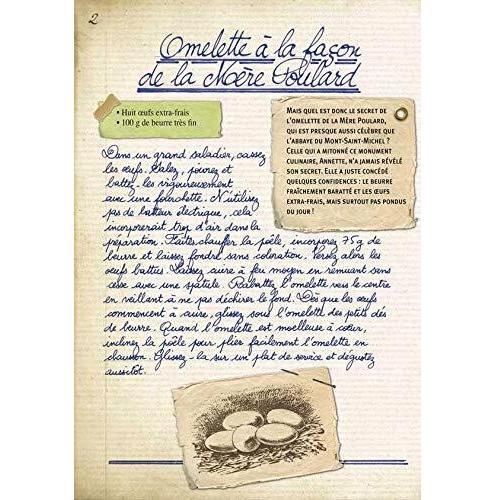 2
Omelette à la façon
de la Mère Poulard
• Huit œufs extra-frais
• 100 g de beurre très fin
Mais quel est donc le secret de
l'omelette de la Mère Poulard,
qui est presque aussi célèbre que
l'abbaye du Mont-Saint-Michel ?
Celle qui a mitonné ce monument
culinaire, Annette, n'a jamais révélé
son secret. Elle a juste concédé
quelques confidences : le beurre
fraîchement baratté et les œufs
extra-frais, mais surtout pas pondus
du jour !
Dans un grand saladier, cassez
les œufs. Salez, poivrez et
battez-les vigoureusement
avec une fourchette. N'utilisez
pas de batteur électrique, cela
incorporerait trop d'air dans la
préparation. Faites chauffer la poêle, incorporez 75 g de
beurre et laissez fondre sans coloration. Versez alors les
œufs battus. Laissez cuire à feu moyen en remuant sans
cesse avec une spatule. Rabattez l'omelette vers le centre
en veillant à ne pas déchirer le fond. Dès que les œufs
commencent à cuire, glissez sous l'omelette des petits dés
de beurre. Quand l'omelette est moelleuse à cœur,
inclinez la poêle pour plier facilement l'omelette en
chausson. Glissez-la sur un plat de service et dégustez
aussitôt.